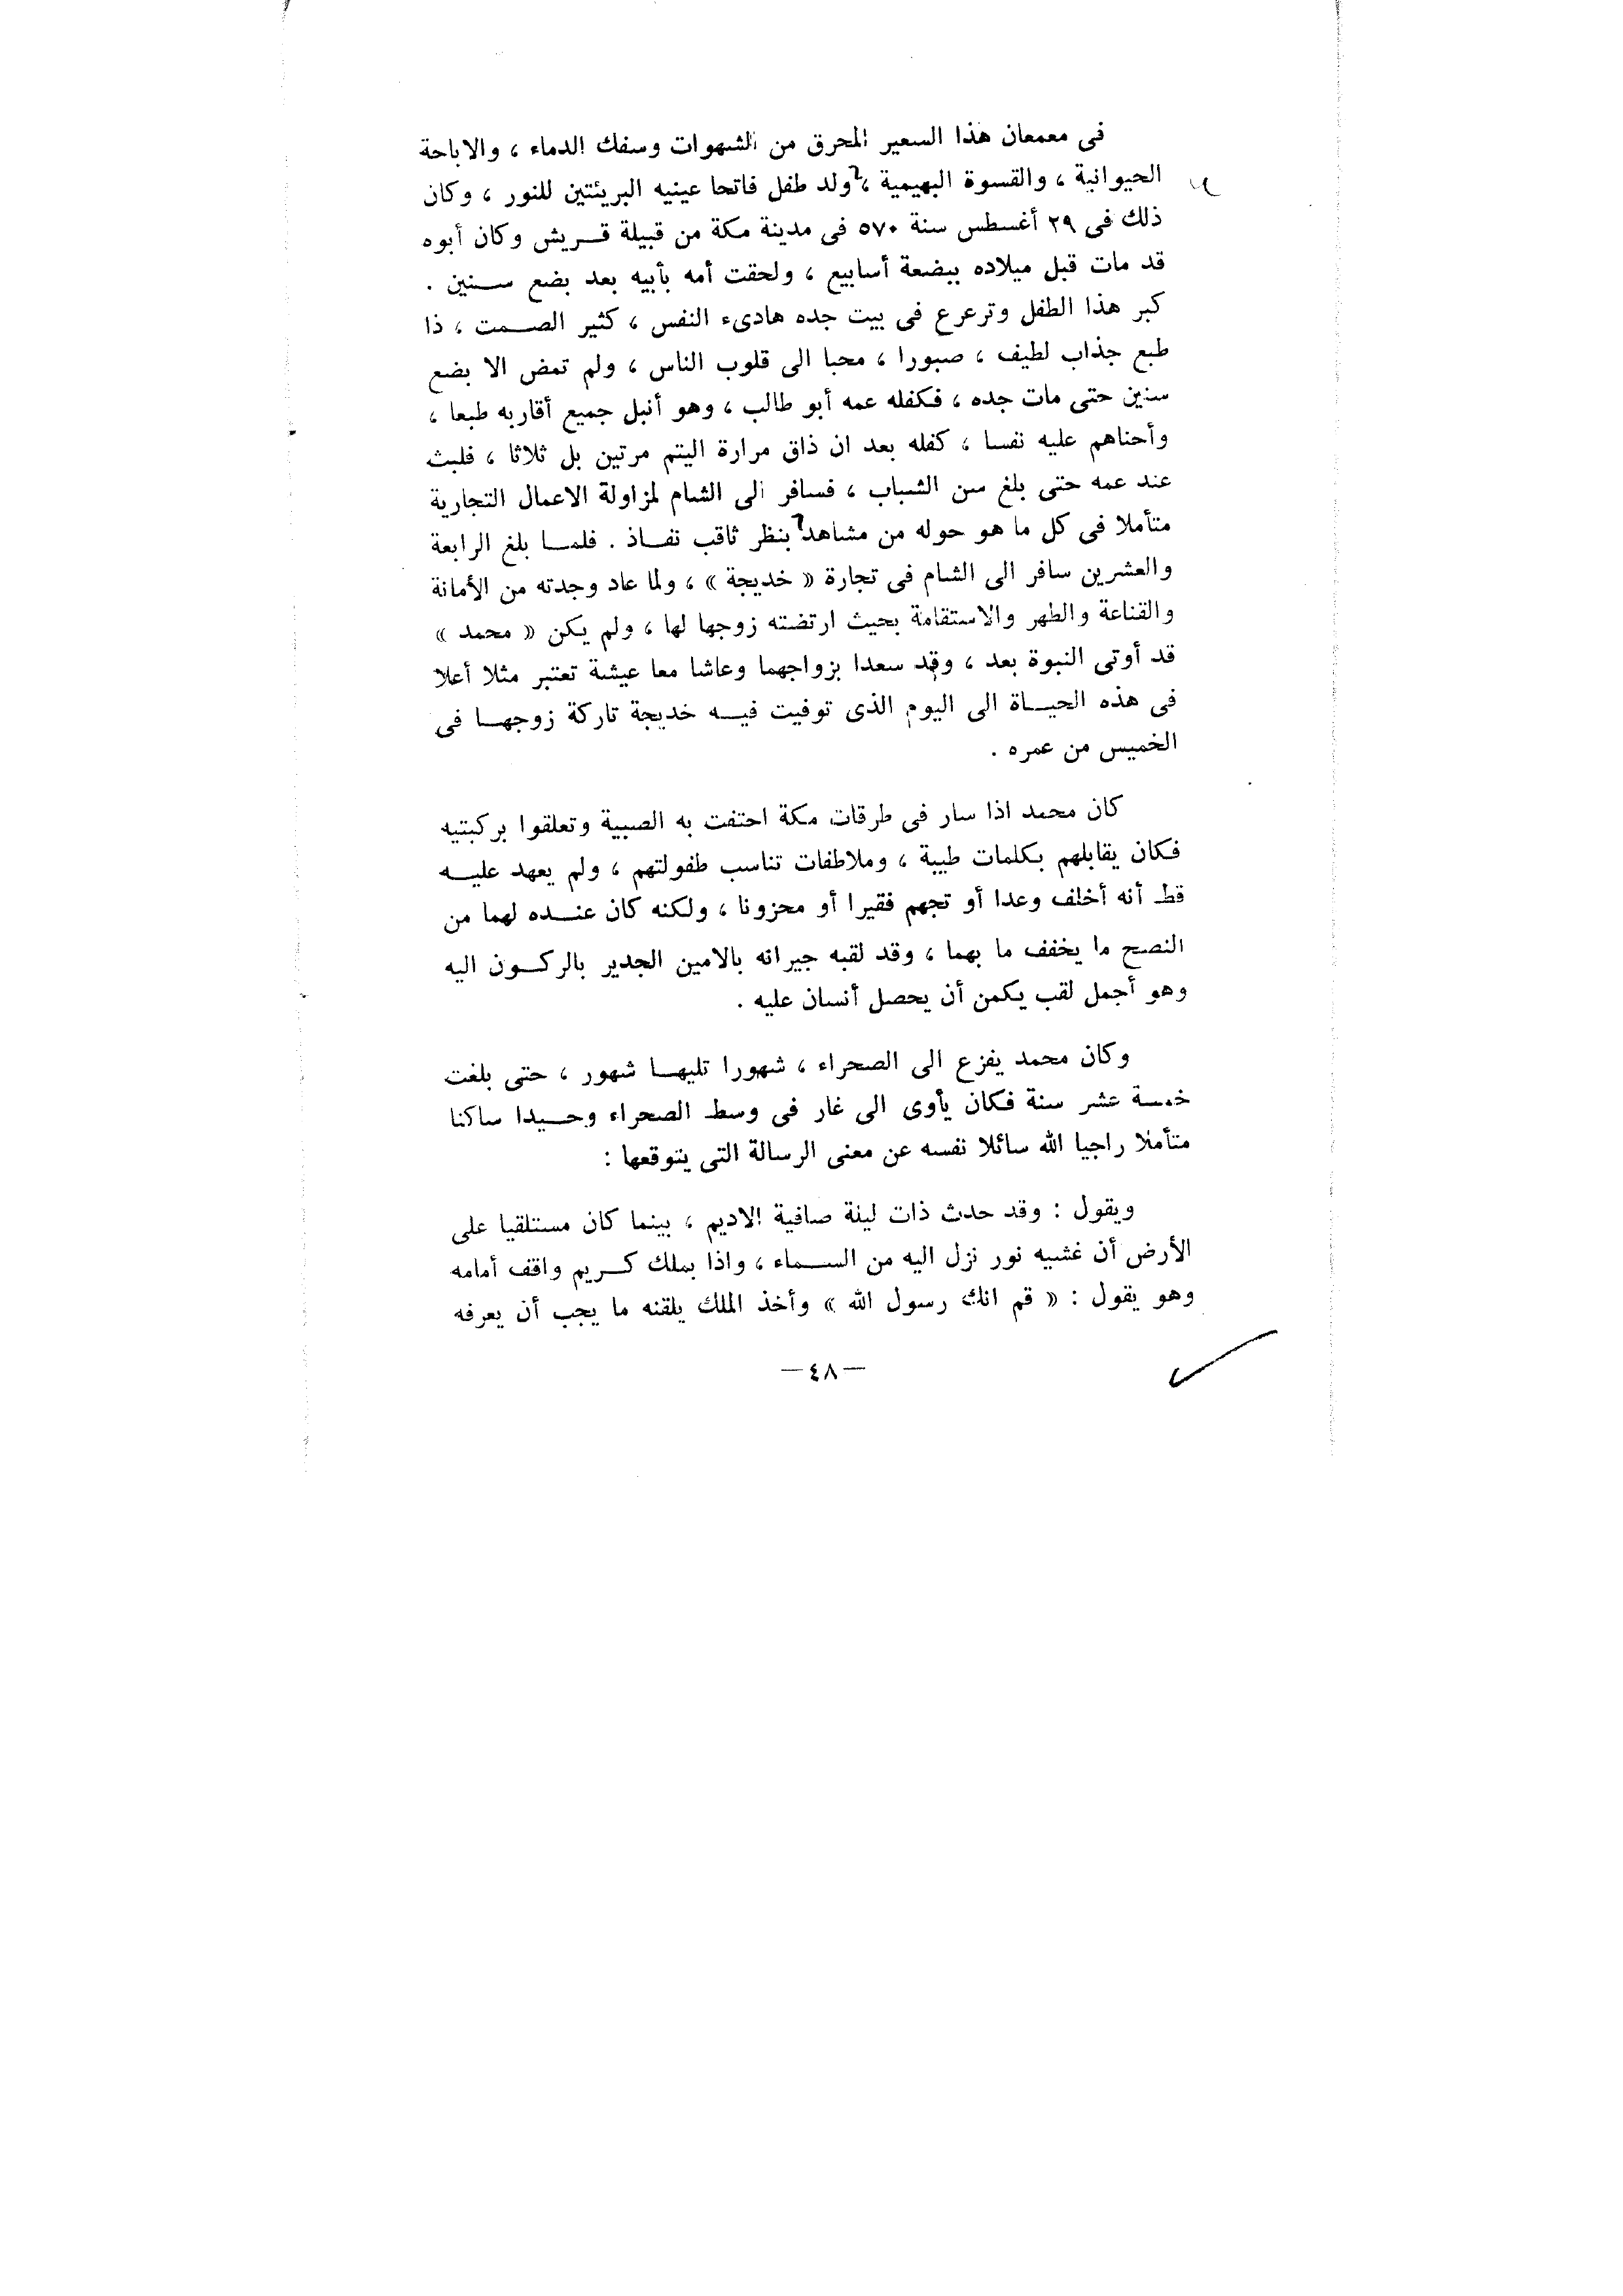 فى معمعان هذا السعير المحرق من الشهوات وسفك الدماء ، والاباحة
الحيوانية ، والقسوة البهيمية ، ولد طفل فاتحا عينيه البريئتين للنور ، وكان
ذلك فى ٢٩ أغسطس سنة ٥٧٠ فى مدينة مكة من قبيلة قريش وكان أبوه
قد مات قبل ميلاده ببضعة أسابيع ، ولحقت أمه بأبيه بعد بضع سنين .
كبر هذا الطفل وترعرع فى بيت جده هادىء النفس ، كثير الصمت ، ذا
طبع جذاب لطيف ، صبورا ، محبا الى قلوب الناس ، ولم تمض الا بضع
سنين حتى مات جده ، فكفله عمه أبو طالب ، وهو أنبل جميع أقاربه طبعا ،
وأحناهم عليه نفسا ، كفله بعد ان ذاق مرارة اليتم مرتين بل ثلاثا ، فلبث
عند عمه حتى بلغ سن الشباب ، فسافر الى الشام لمزاولة الاعمال التجارية
متأملا فى كل ما هو حوله من مشاهد بنظر ثاقب نفاذ . فلما بلغ الرابعة
والعشرين سافر الى الشام فى تجارة « خديجة » ، ولما عاد وجدته من الأمانة
والقناعة والطهر والاستقامة بحيث ارتضته زوجها لها ، ولم يكن « محمد »
قد أوتى النبوة بعد ، وقد سعدا بزواجهما وعاشا معا عيشة تعتبر مثلا أعلا
فى هذه الحياة الى اليوم الذى توفيت فيه خديجة تاركة زوجها فى
الخميس من عمره .
كان محمد اذا سار فى طرقات مكة احتفت به الصبية وتعلقوا بركبتيه
فكان يقابلهم بكلمات طيبة ، وملاطفات تناسب طفولتهم ، ولم يعهد عليه
قط أنه أخلف وعدا أو تجهم فقيرا أو محزونا ، ولكنه كان عنده لهما من
النصح ما يخفف ما بهما ، وقد لقبه جيرانه بالامين الجدير بالركون اليه
وهو أجمل لقب يكمن أن يحصل أنسان عليه .
وكان محمد يفزع الى الصحراء ، شهورا تليها شهور ، حتى بلغت
خمسة عشر سنة فكان يأوى الى غار فى وسط الصحراء وحيدا ساكنا
متأملا راجيا الله سائلا نفسه عن معنى الرسالة التى يتوقعها :
ويقول : وقد حدث ذات ليلة صافية الاديم ، بينما كان مستلقيا على
الأرض أن غشيه نور نزل اليه من السماء ، واذا بملك كريم واقف أمامه
وهو يقول : « قم انك رسول الله » وأخذ الملك يلقنه ما يجب أن يعرفه
—٤٨—